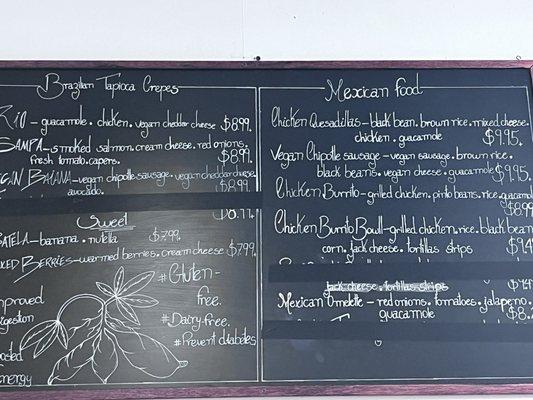 Brazilian Tapioca Crepes
Rio - guacamole. chicken. vegan cheddar cheese $8.99.
Sampa - smoked salmon. cream cheese. red onions.
fresh tomato. capers. $8.99.
Bahiana - vegan chipotle sausage. vegan cheddar cheese
avocado. $8.99
Sweet
banana. nutella $7.99.
Berries - warmed berries. cream cheese $7.99.
#Gluten-
Free.
#Dairy-Free.
#Prevent diabetes
Energy
Mexican Food
Chicken Quesadillas - black bean. brown rice. mixed cheese.
chicken. guacamole $9.95.
Vegan Chipotle sausage - vegan sausage. brown rice.
black beans. vegan cheese. guacamole $9.95.
Chicken Burrito - grilled chicken. pinto beans. rice. guacamole
$8.99
Chicken Burrito Bowl - grilled chicken. rice. black beans
corn. jack cheese. tortillas strips
jack cheese. tortillas strips
Mexican Omelette - red onions. tomatoes. jalapeno.
guacamole